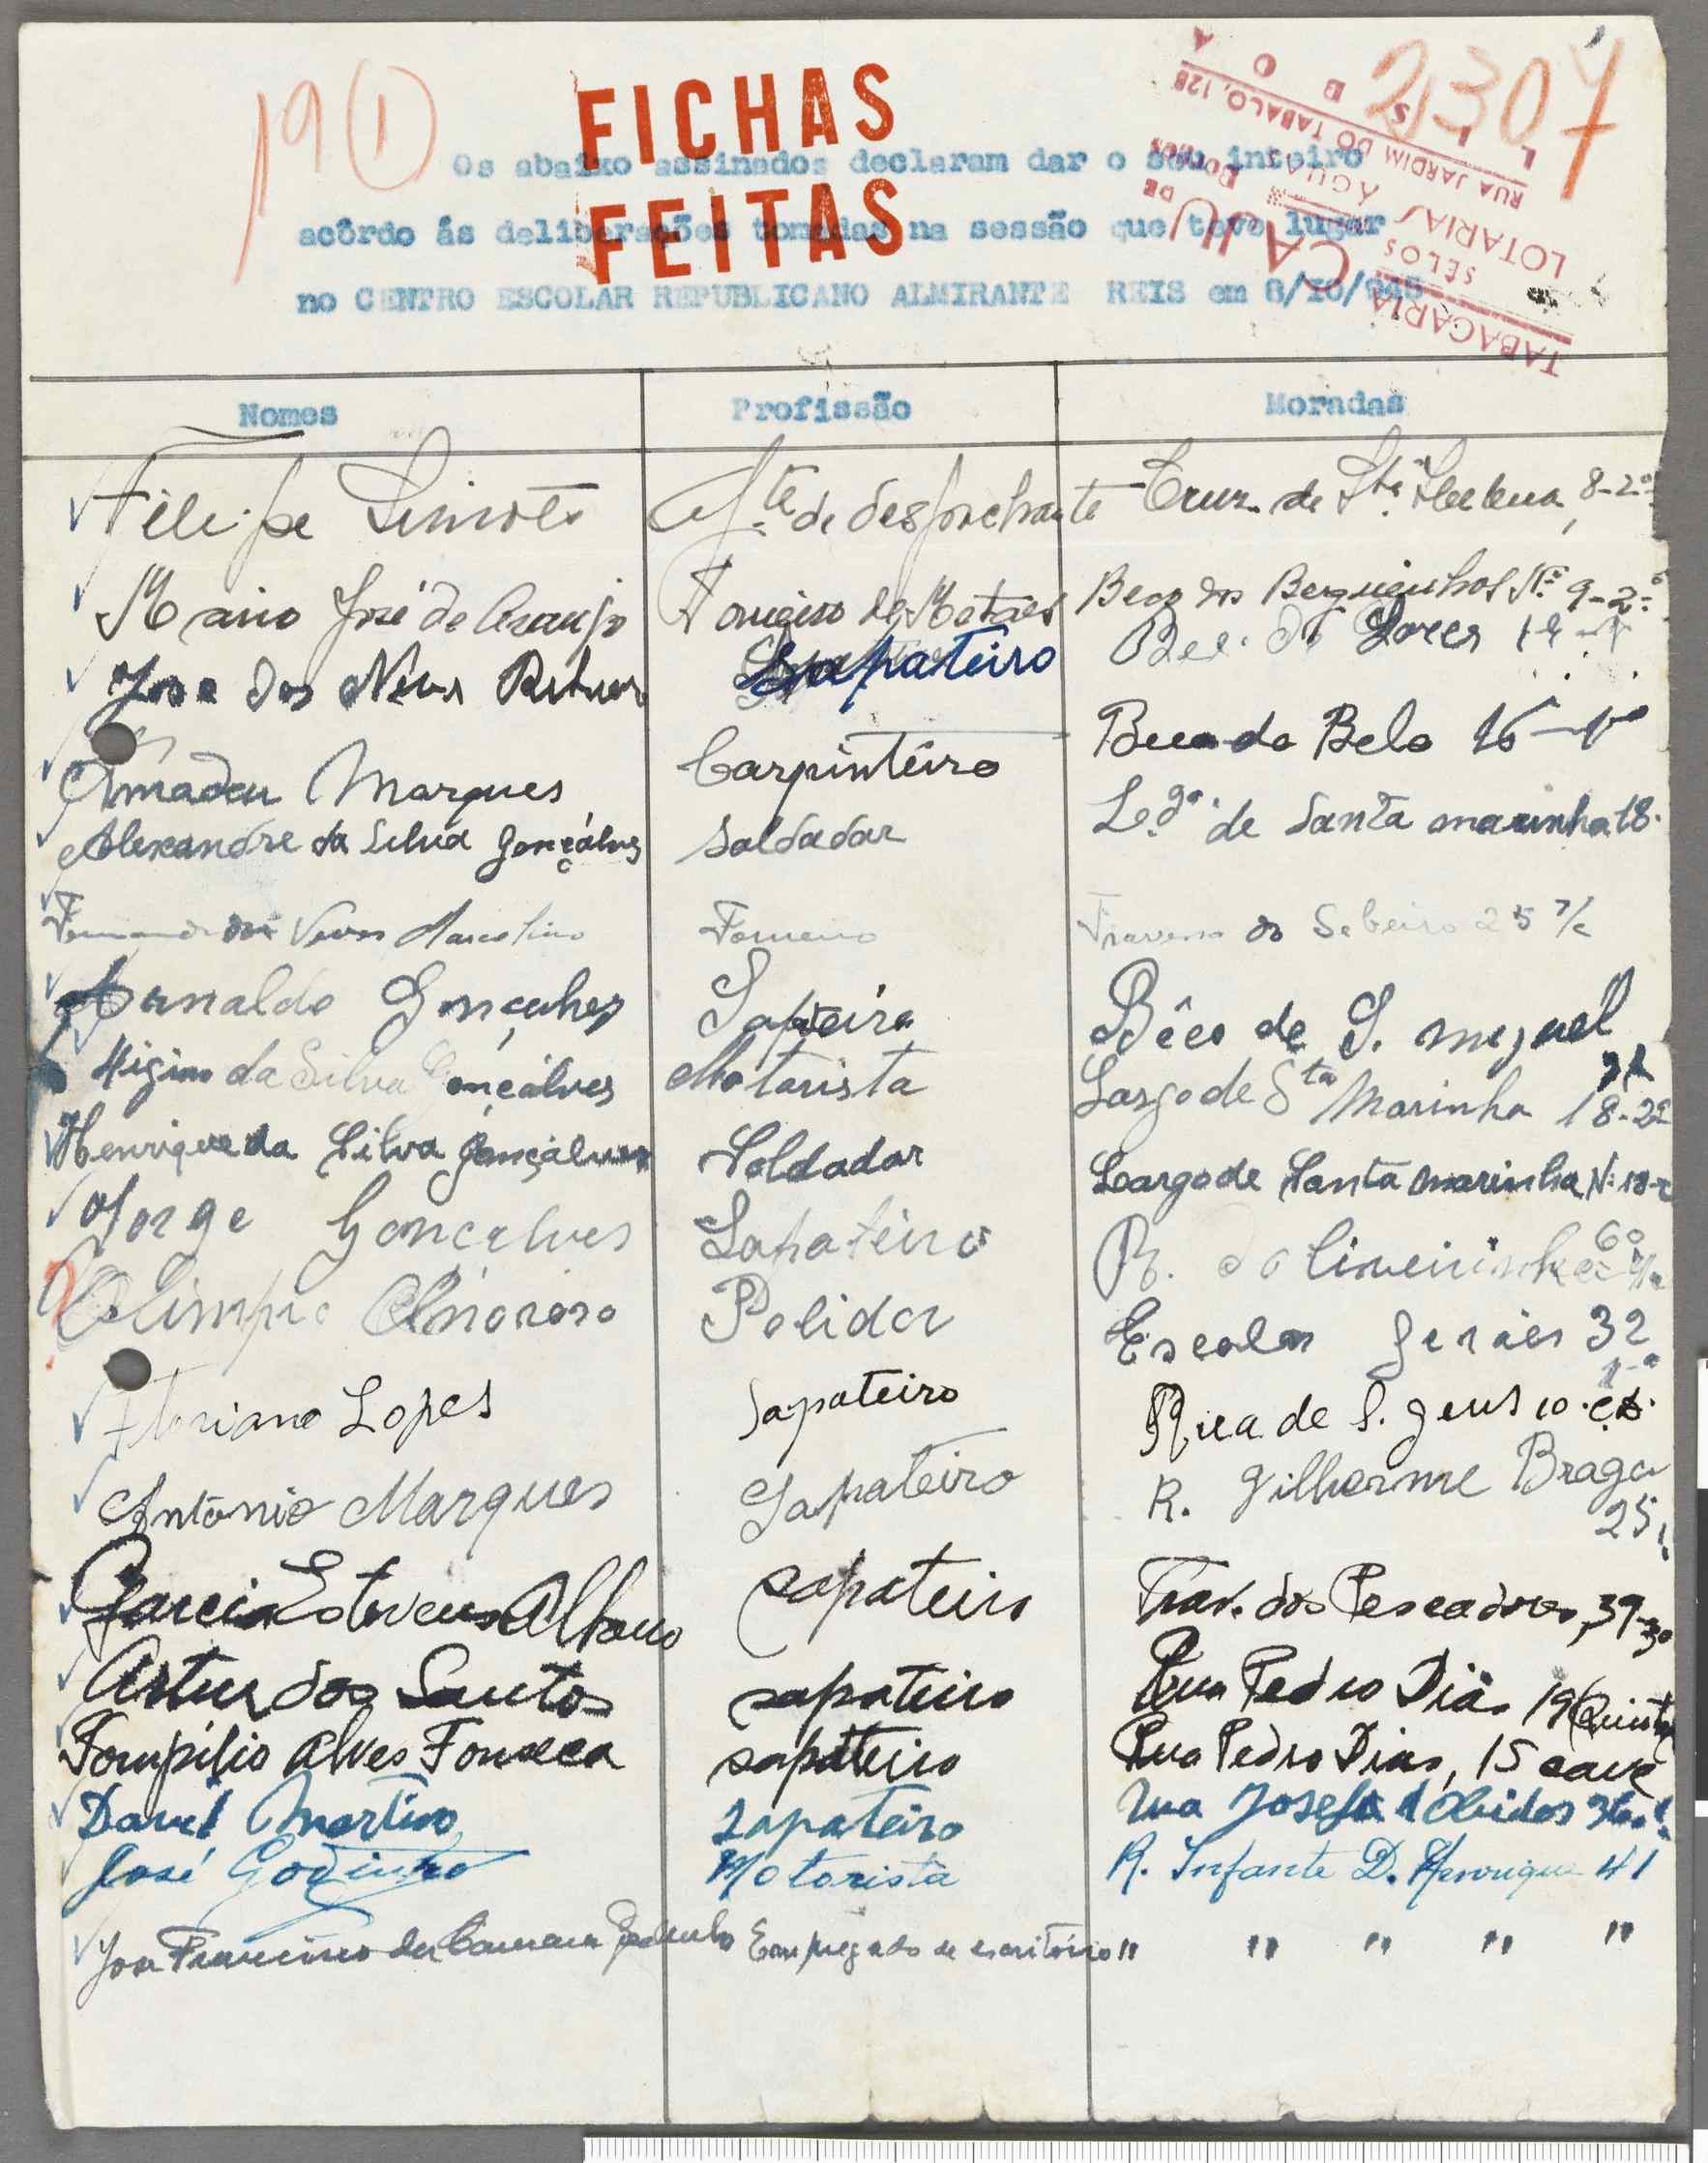 19 1
2307
FICHAS
FEITAS
TABACARIA
CAJU
SÊLOS
LOTARIAS
RUA JARDIM DO TABACO, 128
LISBOA
Os abaixo assinados declaram dar o seu inteiro
acôrdo ás deliberações tomadas na sessão que teve lugar
no CENTRO ESCOLAR REPUBLICANO ALMIRANTE REIS em 8/10/945
Nomes Profissão Moradas
Filipe Simões de despachante Cruz. de Stª Helena, 8-2º
Mario José de Araujo Torneiro de Metaes Beco dos N.º 9-2.º
Jose das Neves Sapateiro
Beco do Belo 16
Amadeu Marques Carpinteiro
Alexandre da Silva Gonçálves Soldador de Santa marinha 18
25
Arnaldo Gonçalves Bêco de S. miguel
Higino da Silva Gonçálves Motorista Largo de Sta Marinha 18-2º
Henrique da Silva Gonçalves Soldador Largo de Santa marinha Nº 18-2
Jorge Gonçalves Sapateiro R. da
Olimpio Amoroso Polidor Escolas Gerais 32
Floriano Lopes Sapateiro Rua de S. 10
António Marques Sapateiro R. Gilherme Braga
25
Garcia Esteves sapateiro Trav. dos Pescadores, 39-3º
Artur dos Santos sapateiro Rua Pedro Dias 19 (Quintal
Pompílio Alves Fonseca sapateiro Rua Pedro Dias, 15 cave
Daniel Martins sapateiro Rua Josefa d'Obidos
José Godinho Motorista R. Infante D. Henrique 41
José Francisco da Camara Empregado de escritório " " " " "